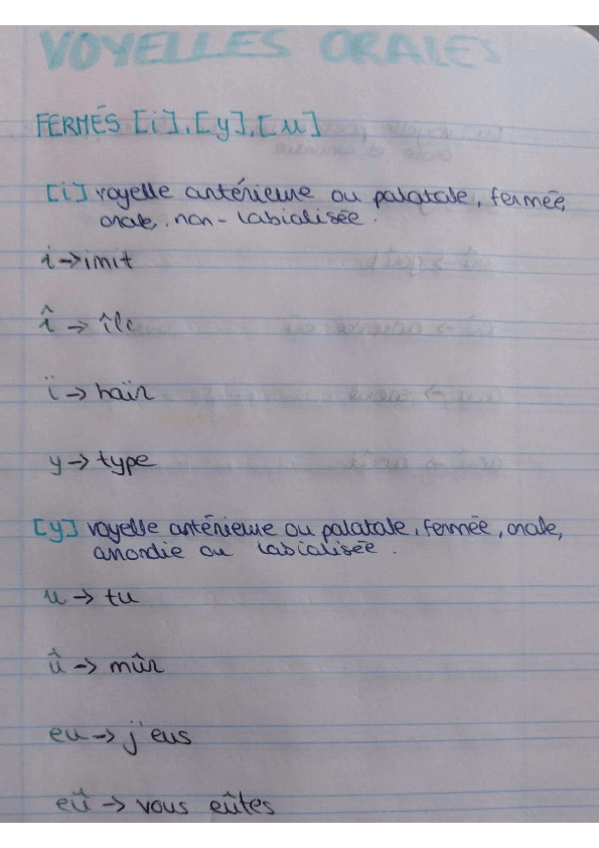 VOYELLES ORALES
FERMÉS [i], [y], [u]
[i] voyelle antérieure ou palatale, fermée,
orale, non-labialisée.
i → imit
î → île
ï → haïr
y → type
[y] voyelle antérieure ou palatale, fermée, orale,
arrondie ou labialisée.
u → tu
û → mûr
eu → j'eus
eû → vous eûtes